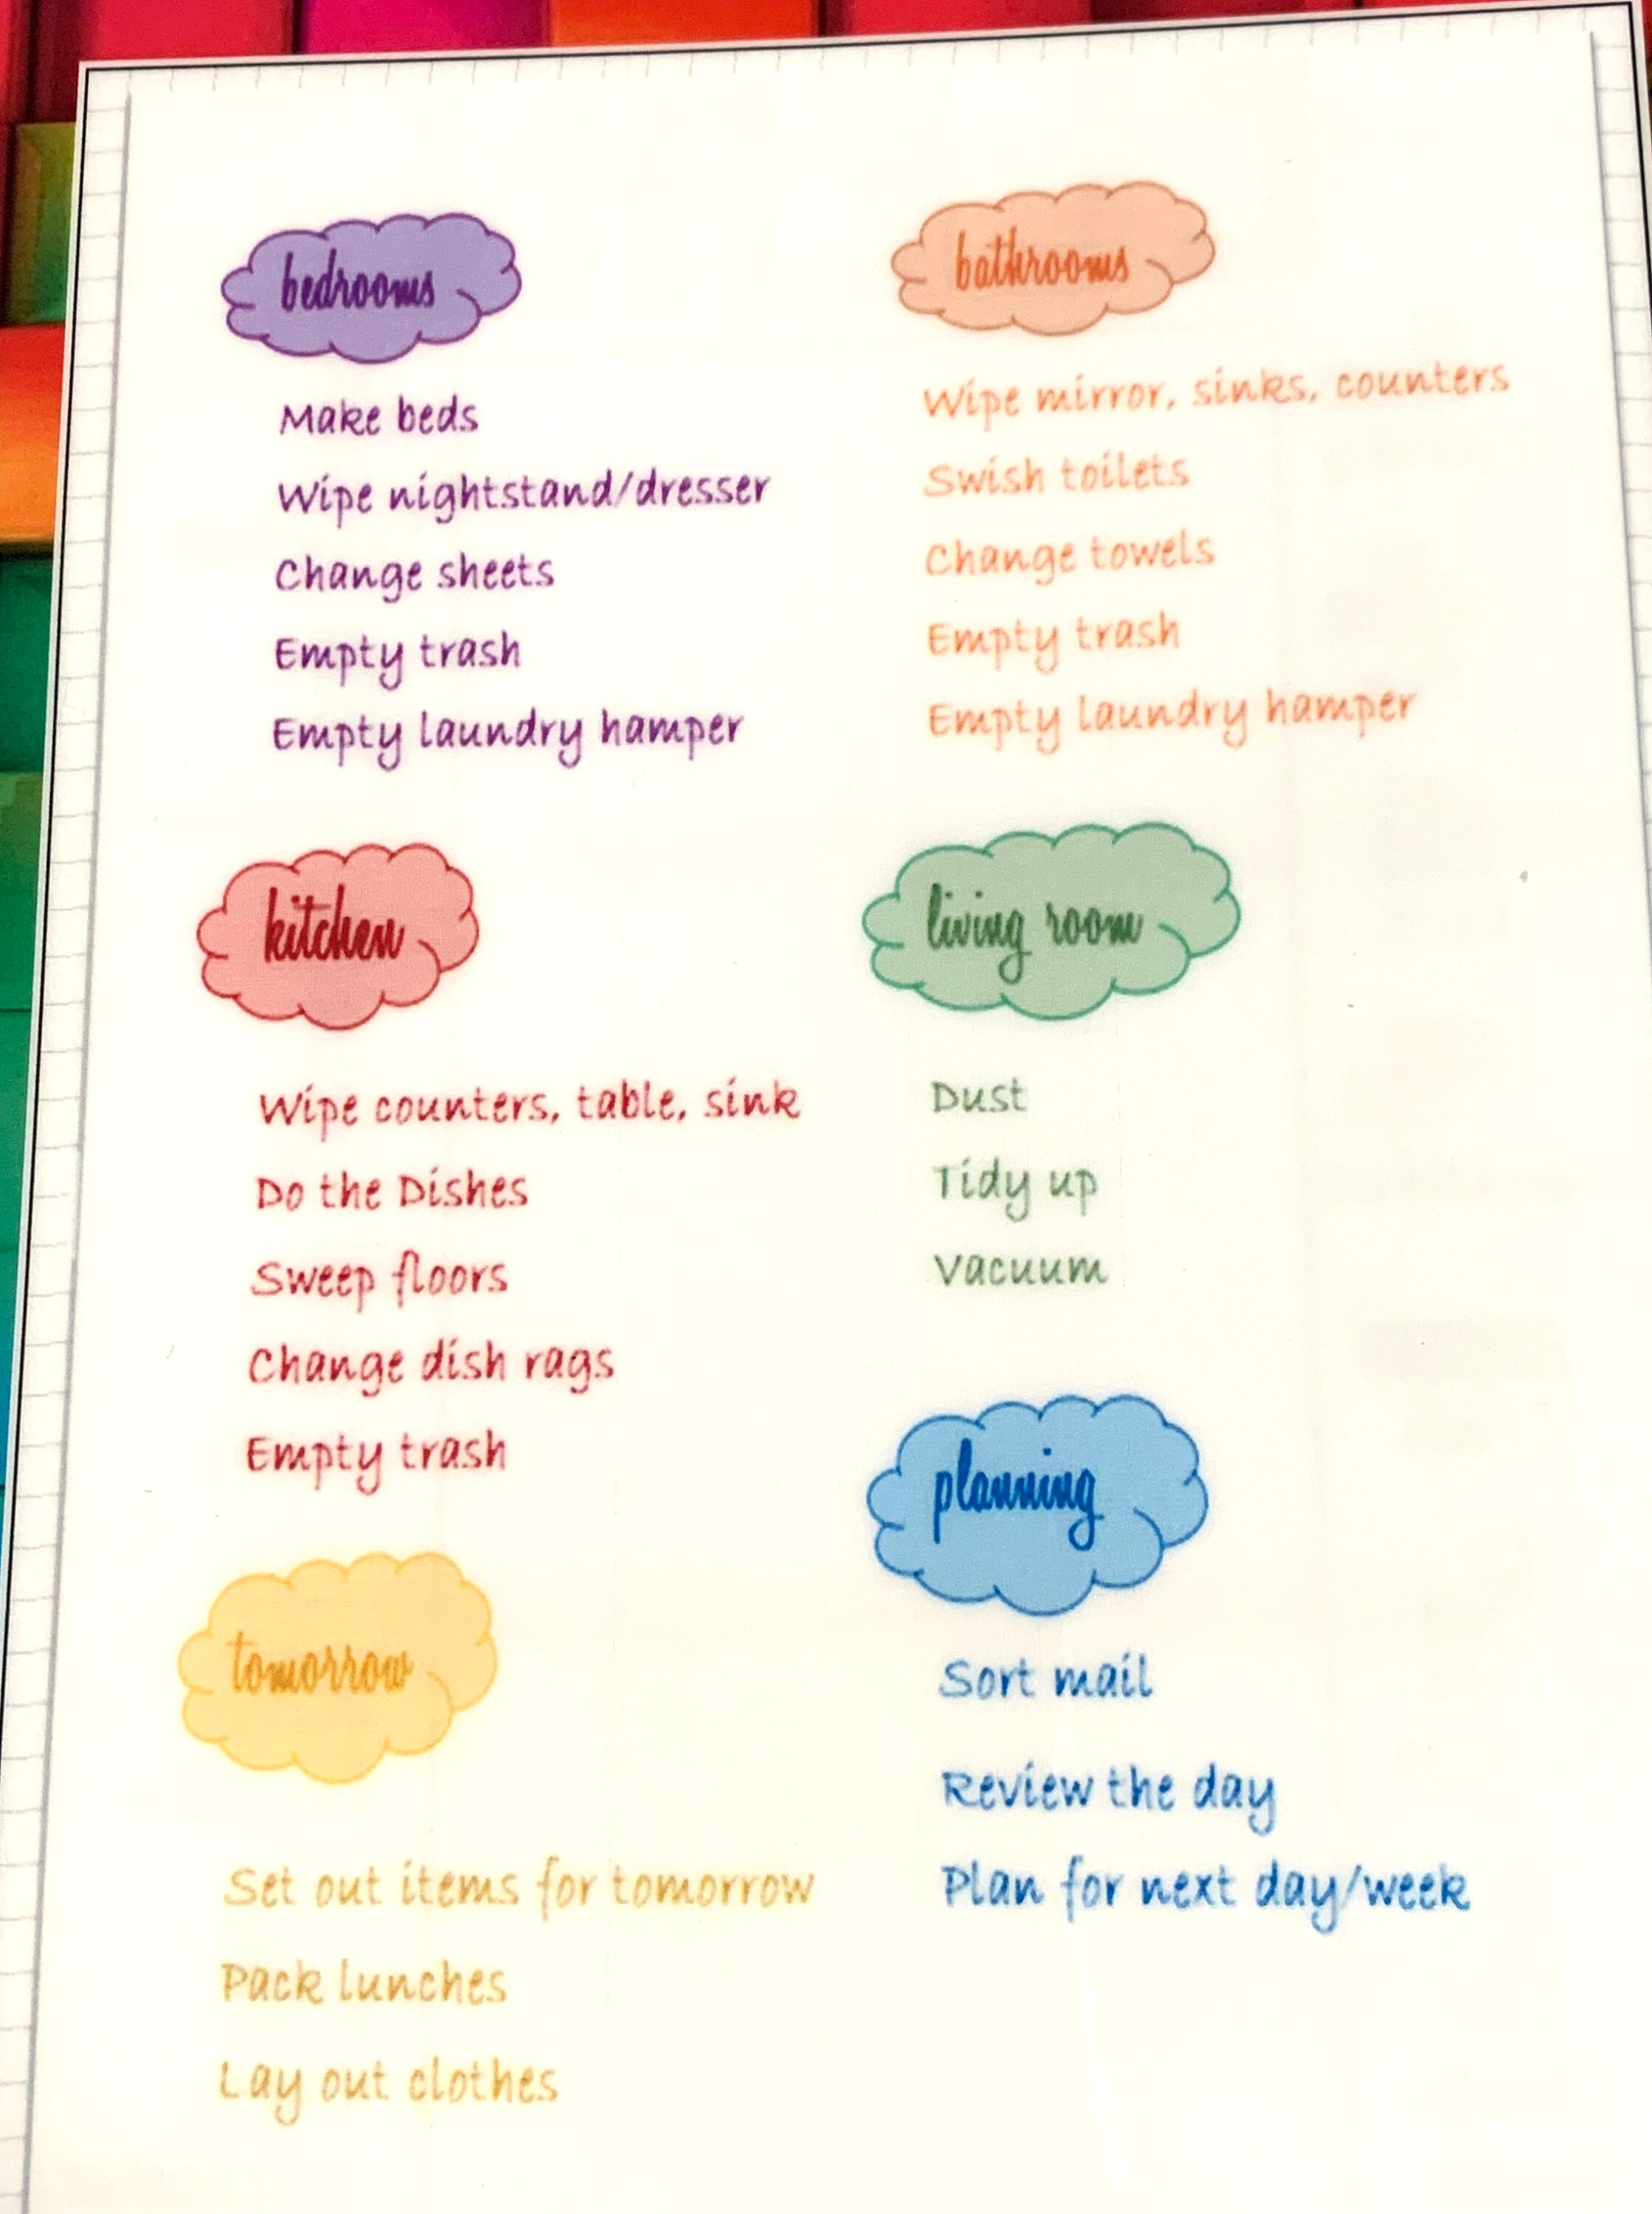 bedrooms
Make beds
Wipe nightstand/dresser
Change sheets
Empty trash
Empty laundry hamper
bathrooms
Wipe mirror, sinks, counters
Swish toilets
Change towels
Empty trash
Empty laundry hamper
kitchen
Wipe counters, table, sink
Do the Dishes
Sweep floors
Change dish rags
Empty trash
living room
Dust
Tidy up
Vacuum
tomorrow
Set out items for tomorrow
Pack lunches
Lay out clothes
planning
Sort mail
Review the day
Plan for next day/week